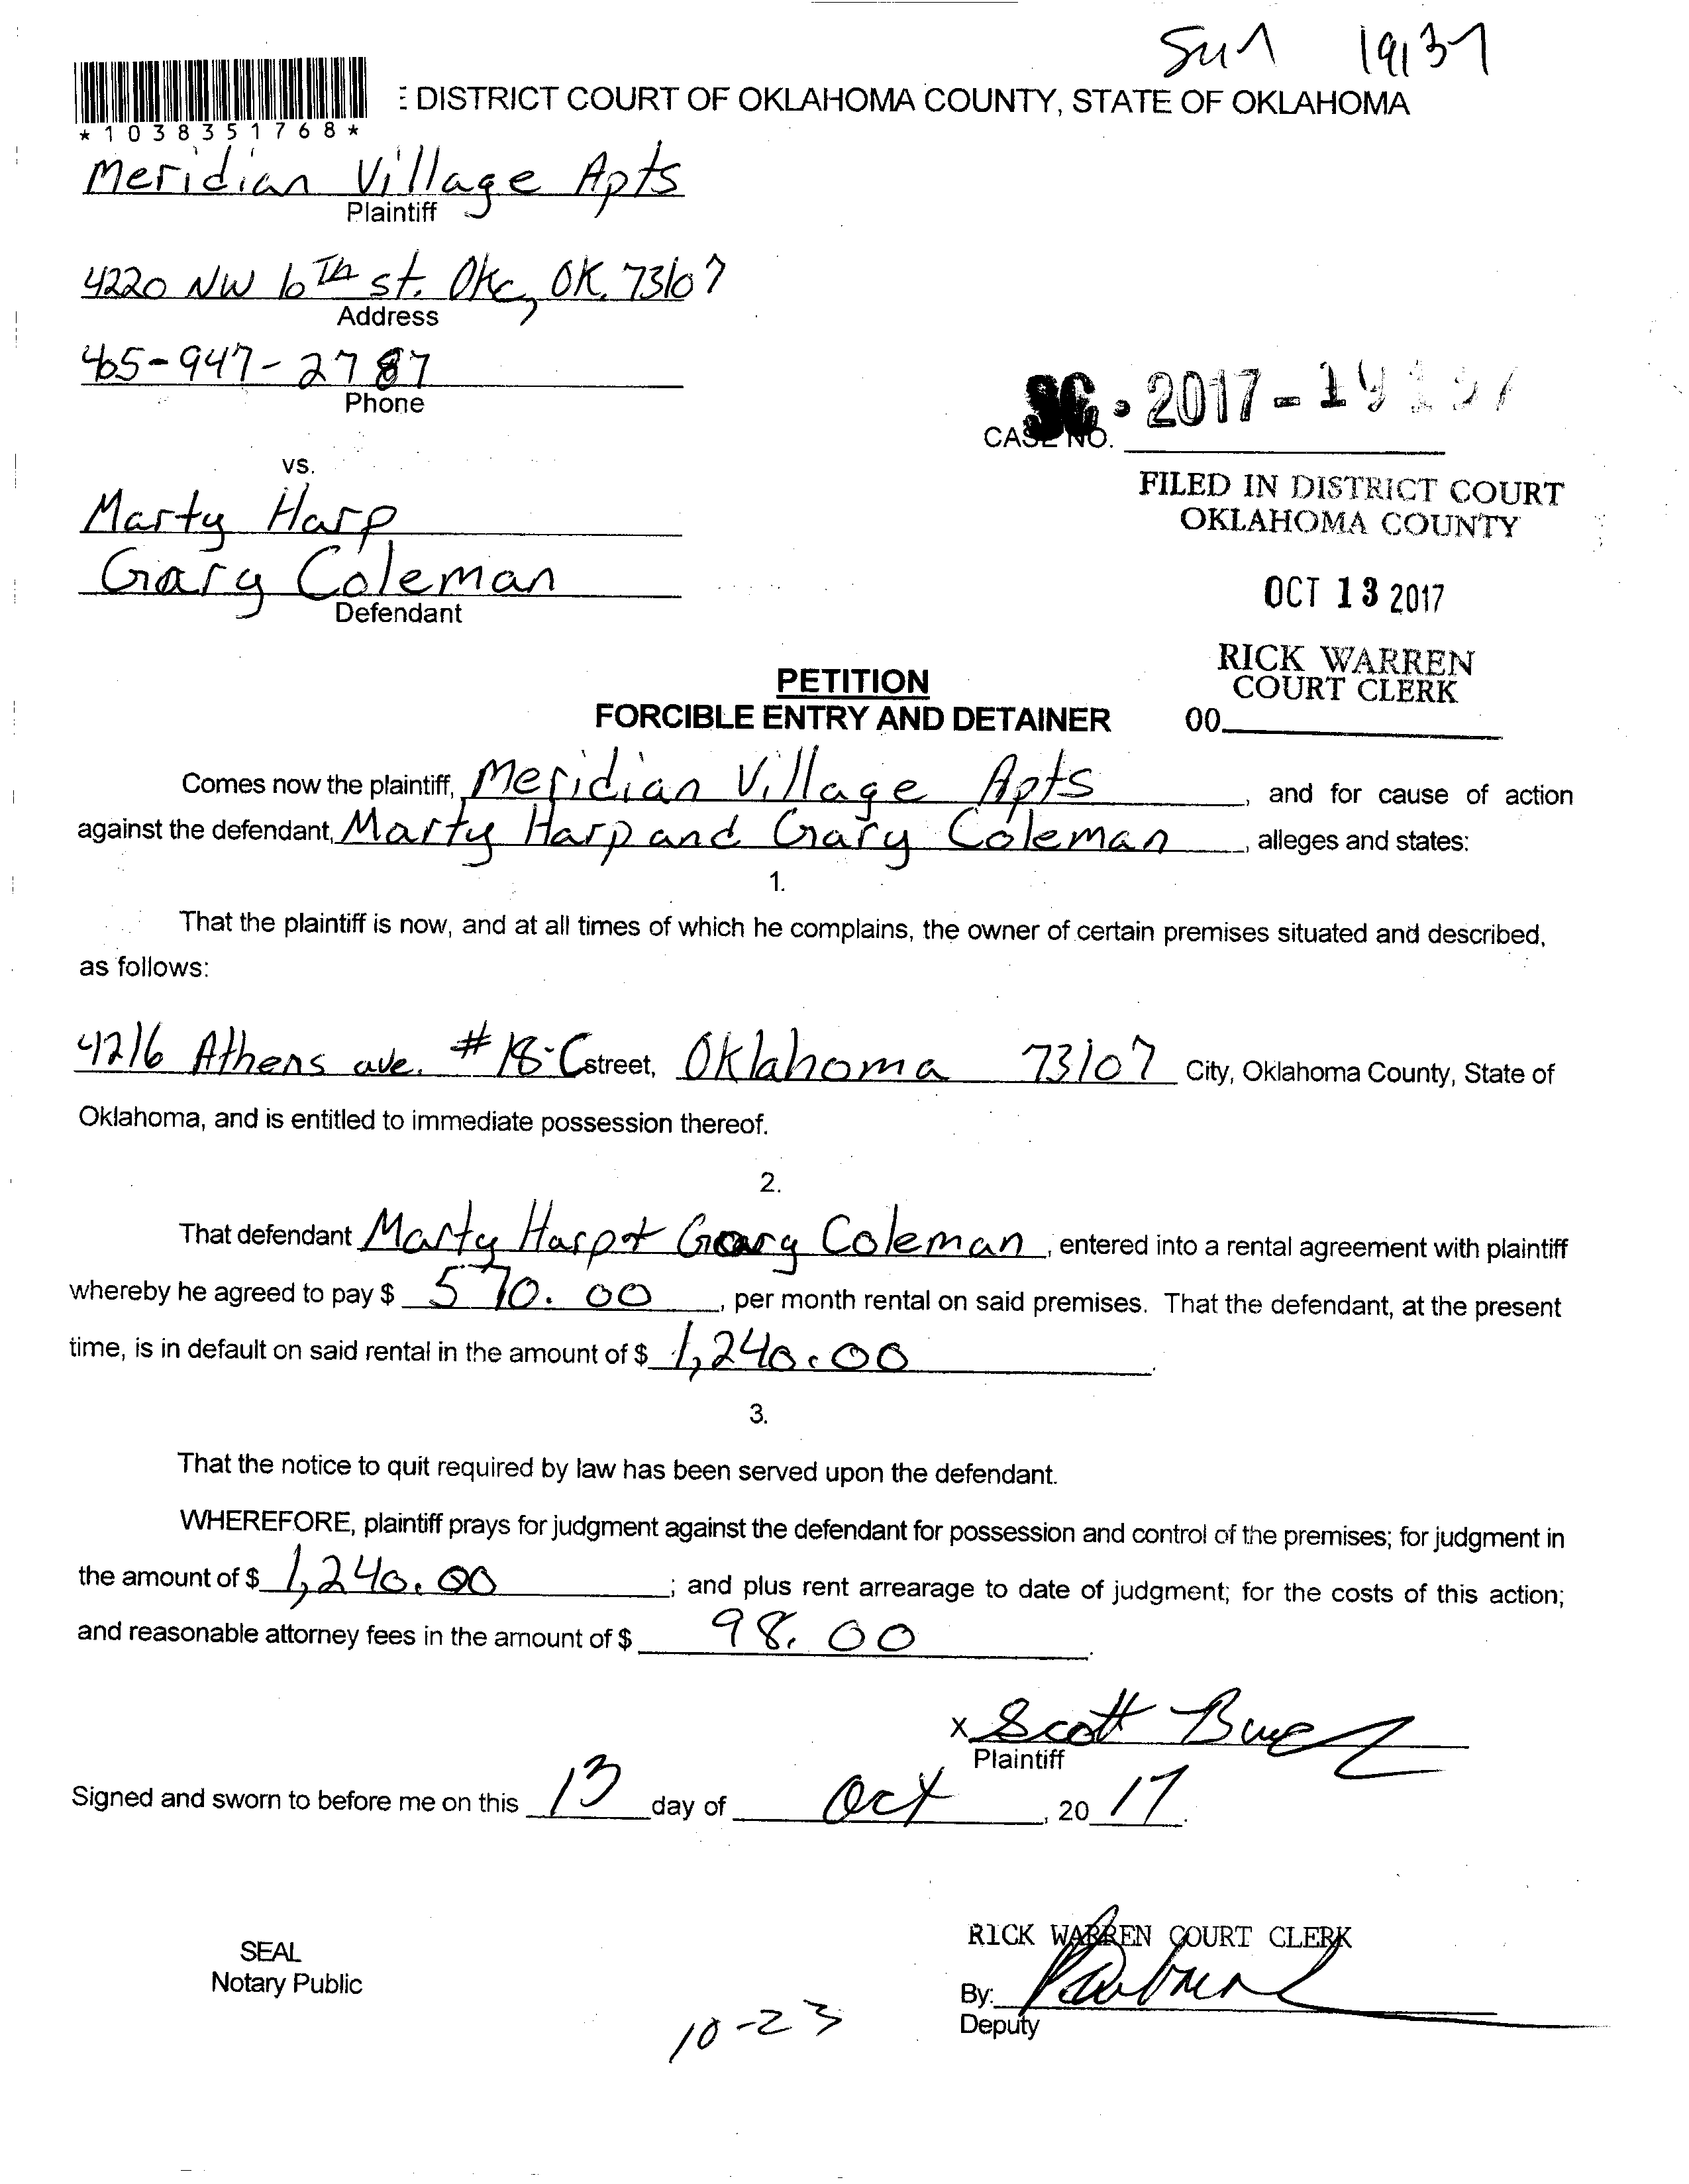 * 1 0 3 8 3 5 1 7 6 8 *
DISTRICT COURT OF OKLAHOMA COUNTY, STATE OF OKLAHOMA
Meridian Village Apts
Plaintiff
4220 NW 10TH st. Okc, OK. 73107
Address
405-947-2787
Phone
SC - 2017-
CASE NO.
vs.
FILED IN DISTRICT COURT
OKLAHOMA COUNTY
Marty Harp
Gary Coleman
Defendant
OCT 13 2017
RICK WARREN
COURT CLERK
00
PETITION
FORCIBLE ENTRY AND DETAINER
Comes now the plaintiff, Meridian Village Apts, and for cause of action
against the defendant, Marty Harp and Gary Coleman, alleges and states:
1.
That the plaintiff is now, and at all times of which he complains, the owner of certain premises situated and described,
as follows:
4216 Athens ave. #18-C street, Oklahoma 73107 City, Oklahoma County, State of
Oklahoma, and is entitled to immediate possession thereof.
2.
That defendant Marty Harp + Gary Coleman, entered into a rental agreement with plaintiff
whereby he agreed to pay $ 570.00, per month rental on said premises. That the defendant, at the present
time, is in default on said rental in the amount of $ 1,240.00.
3.
That the notice to quit required by law has been served upon the defendant.
WHEREFORE, plaintiff prays for judgment against the defendant for possession and control of the premises; for judgment in
the amount of $ 1,240.00; and plus rent arrearage to date of judgment; for the costs of this action;
and reasonable attorney fees in the amount of $ 98.00.
x Scott
Plaintiff
Signed and sworn to before me on this 13 day of Oct, 20 17.
RICK WARREN COURT CLERK
SEAL
Notary Public
By:
Deputy
10-23